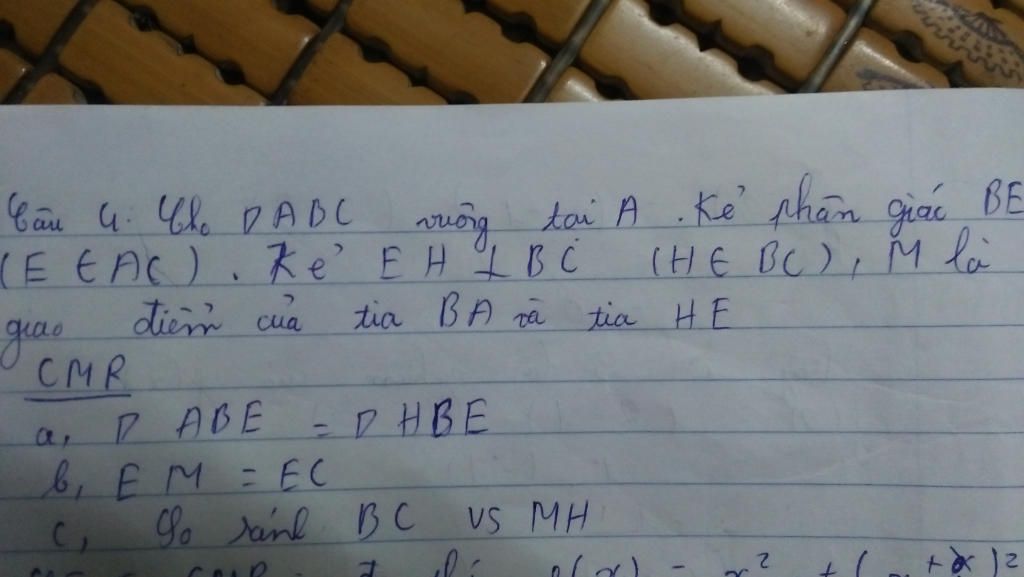 Câu 4. Cho ▷ABC vuông tại A. Kẻ phân giác BE
(E ∈ AC). Kẻ EH ⊥ BC (H ∈ BC), M là
giao điểm của tia BA và tia HE
CMR
a, ▷ ABE = ▷ HBE
b, EM = EC
c, So sánh BC vs MH